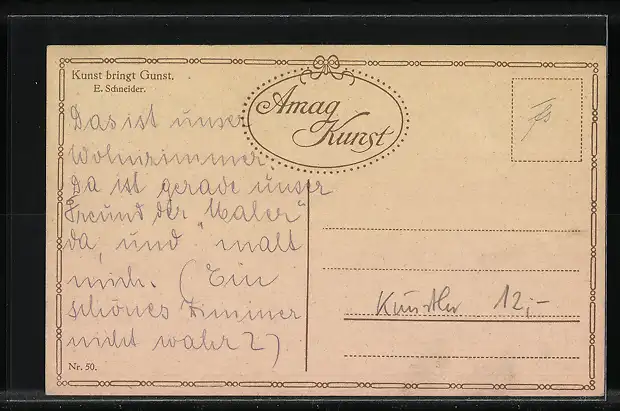 Kunst bringt Gunst.
E. Schneider.
Amag
Kunst
Das ist unser
Wohnzimmer
Da ist gerade unser
Freund der Maler"
da, und malt
mich. (Ein
schönes Zimmer
nicht wahr?)
Künstler 12,-
Nr. 50.